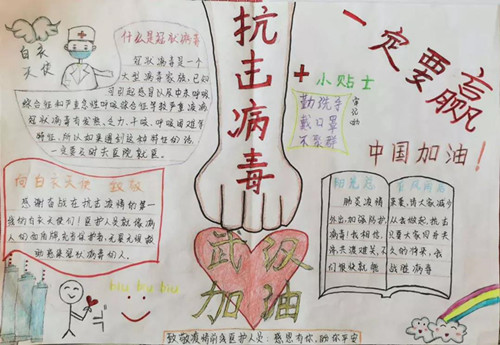 白衣
天使
什么是冠状病毒
冠状病毒是一个
大型病毒家族,已知
可引起感冒以及中东呼吸
综合征和严重急性呼吸综合征等较严重疾病
冠状病毒有发热、乏力、干咳、呼吸困难等
特征,所以如果遇到这种特征的话,
一定要及时去医院就医
向白衣天使 致敬
感谢奋战在抗击疫情的第一
线的白衣天使们!医护人员就像病
人的
保护者,无畏无惧救
助感染冠状病毒的人。
biu biu biu
抗击病毒
武汉
加油
小贴士
勤洗手
戴口罩
不聚群
一定要赢
中国加油!
肺炎疫情
外出,加强防护
病毒!我相信,
病,共渡难关,不
们很快就能
战胜病毒
致敬疫情前线医护人员:感恩有你,盼你平安